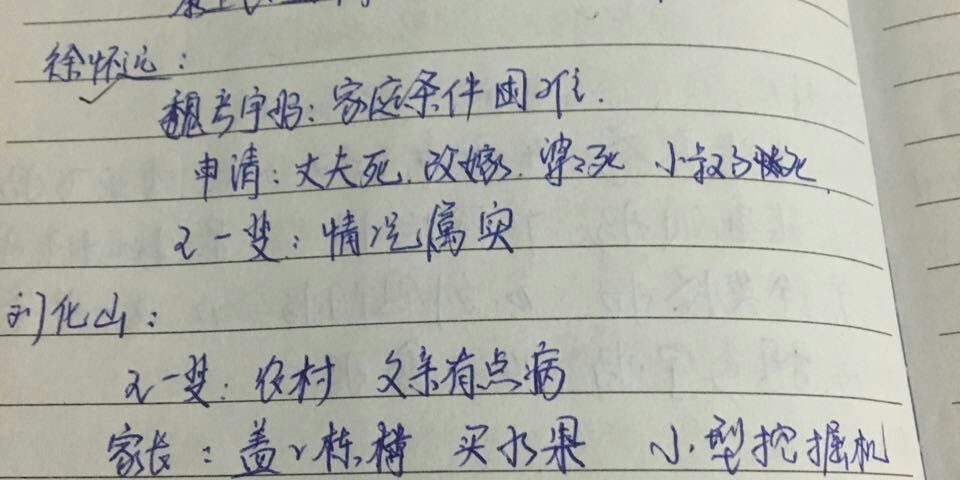 徐怀远:
考宇妈:家庭条件困难.
申请:丈夫死.改嫁.婆婆死 小叔子死
王一斐:情况属实
刘化山:
王一斐:农村 父亲有点病
家长:盖栋楼 买水果 小型挖掘机